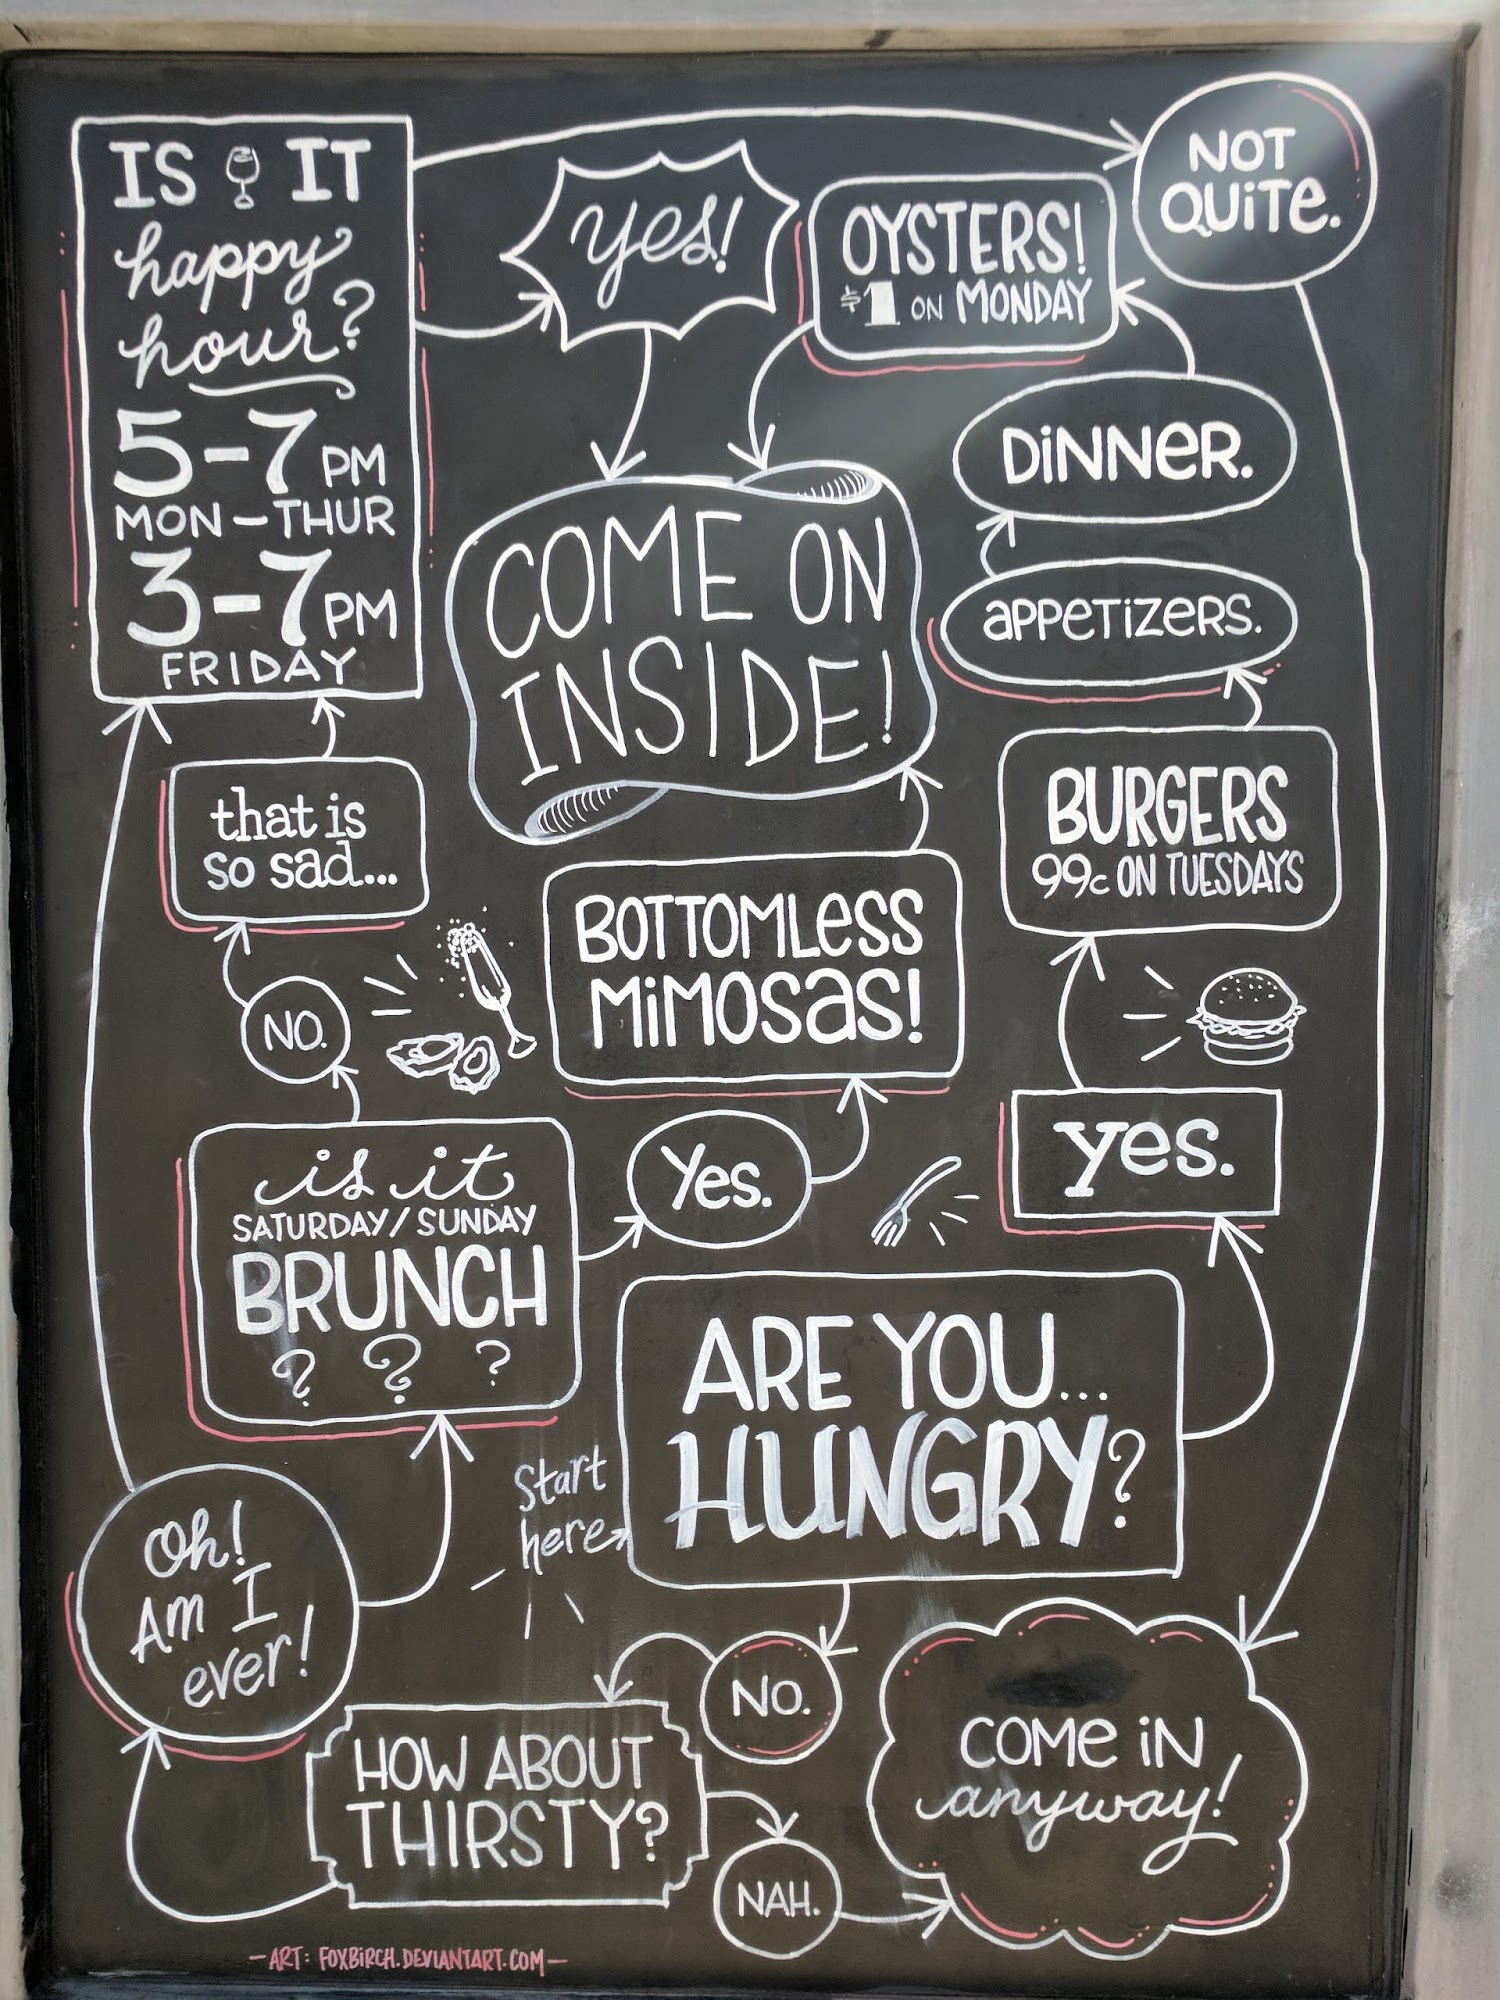 IS IT
happy
hour?
5-7 PM
MON-THUR
3-7 PM
FRIDAY
yes!
OYSTERS!
$1 ON MONDAY
NOT
QUITE.
DINNER.
APPETIZERS.
COME ON
INSIDE!
that is
so sad...
BURGERS
99c ON TUESDAYS
BOTTOMLESS
MIMOSAS!
NO.
is it
SATURDAY/SUNDAY
BRUNCH
? ? ?
Yes.
yes.
ARE YOU...
HUNGRY?
Start
here
Oh!
Am I
ever!
NO.
HOW ABOUT
THIRSTY?
NAH.
COME IN
anyway!
- ART: FOXBIRCH.DEVIANTART.COM -